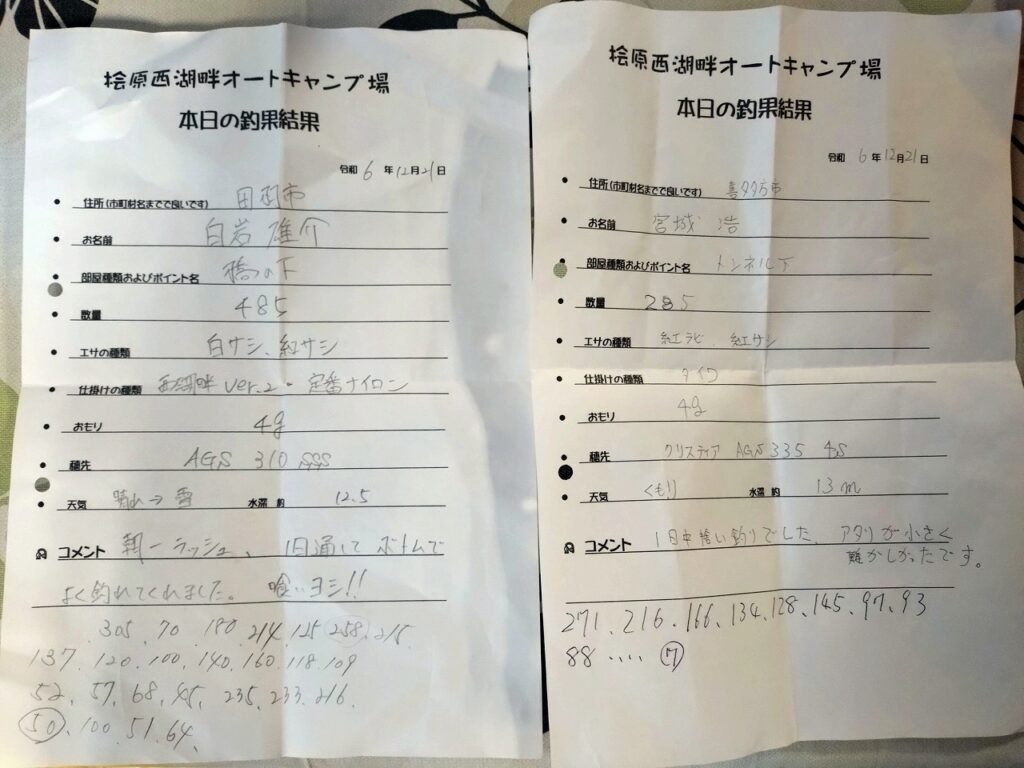 桧原西湖畔オートキャンプ場
本日の釣果結果
令和 6 年 12月 21日
住所(市町村名までで良いです) 田村市
お名前 白岩 雄介
部屋種類およびポイント名 橋の下
数量 485
エサの種類 白サシ、紅サシ
仕掛けの種類 西湖畔 ver.2・定番ナイロン
おもり 4g
穂先 AGS 310 SSS
天気 晴れ→雪 水深 約 12.5
コメント 朝一ラッシュ、1日通してボトムで
よく釣れてくれました。 喰いヨシ!!
305、70 180、214、125、258、215
137、120、100、140、160、118、109
52、57、68、45、235、233、216、
50、100、51、64、
桧原西湖畔オートキャンプ場
本日の釣果結果
令和 6 年 12月 21日
住所(市町村名までで良いです) 喜多方市
お名前 宮城 浩
部屋種類およびポイント名 トンネル下
数量 285
エサの種類 紅ラビ 紅サシ
仕掛けの種類 ダイワ
おもり 4g
穂先 クリスティア AGS 335
天気 くもり 水深 約 13m
コメント 1日中喰い釣りでした、アタリが小さく
難かしかったです。
271、216、166、134、128、145、97、93
88 ‥‥ ⑦